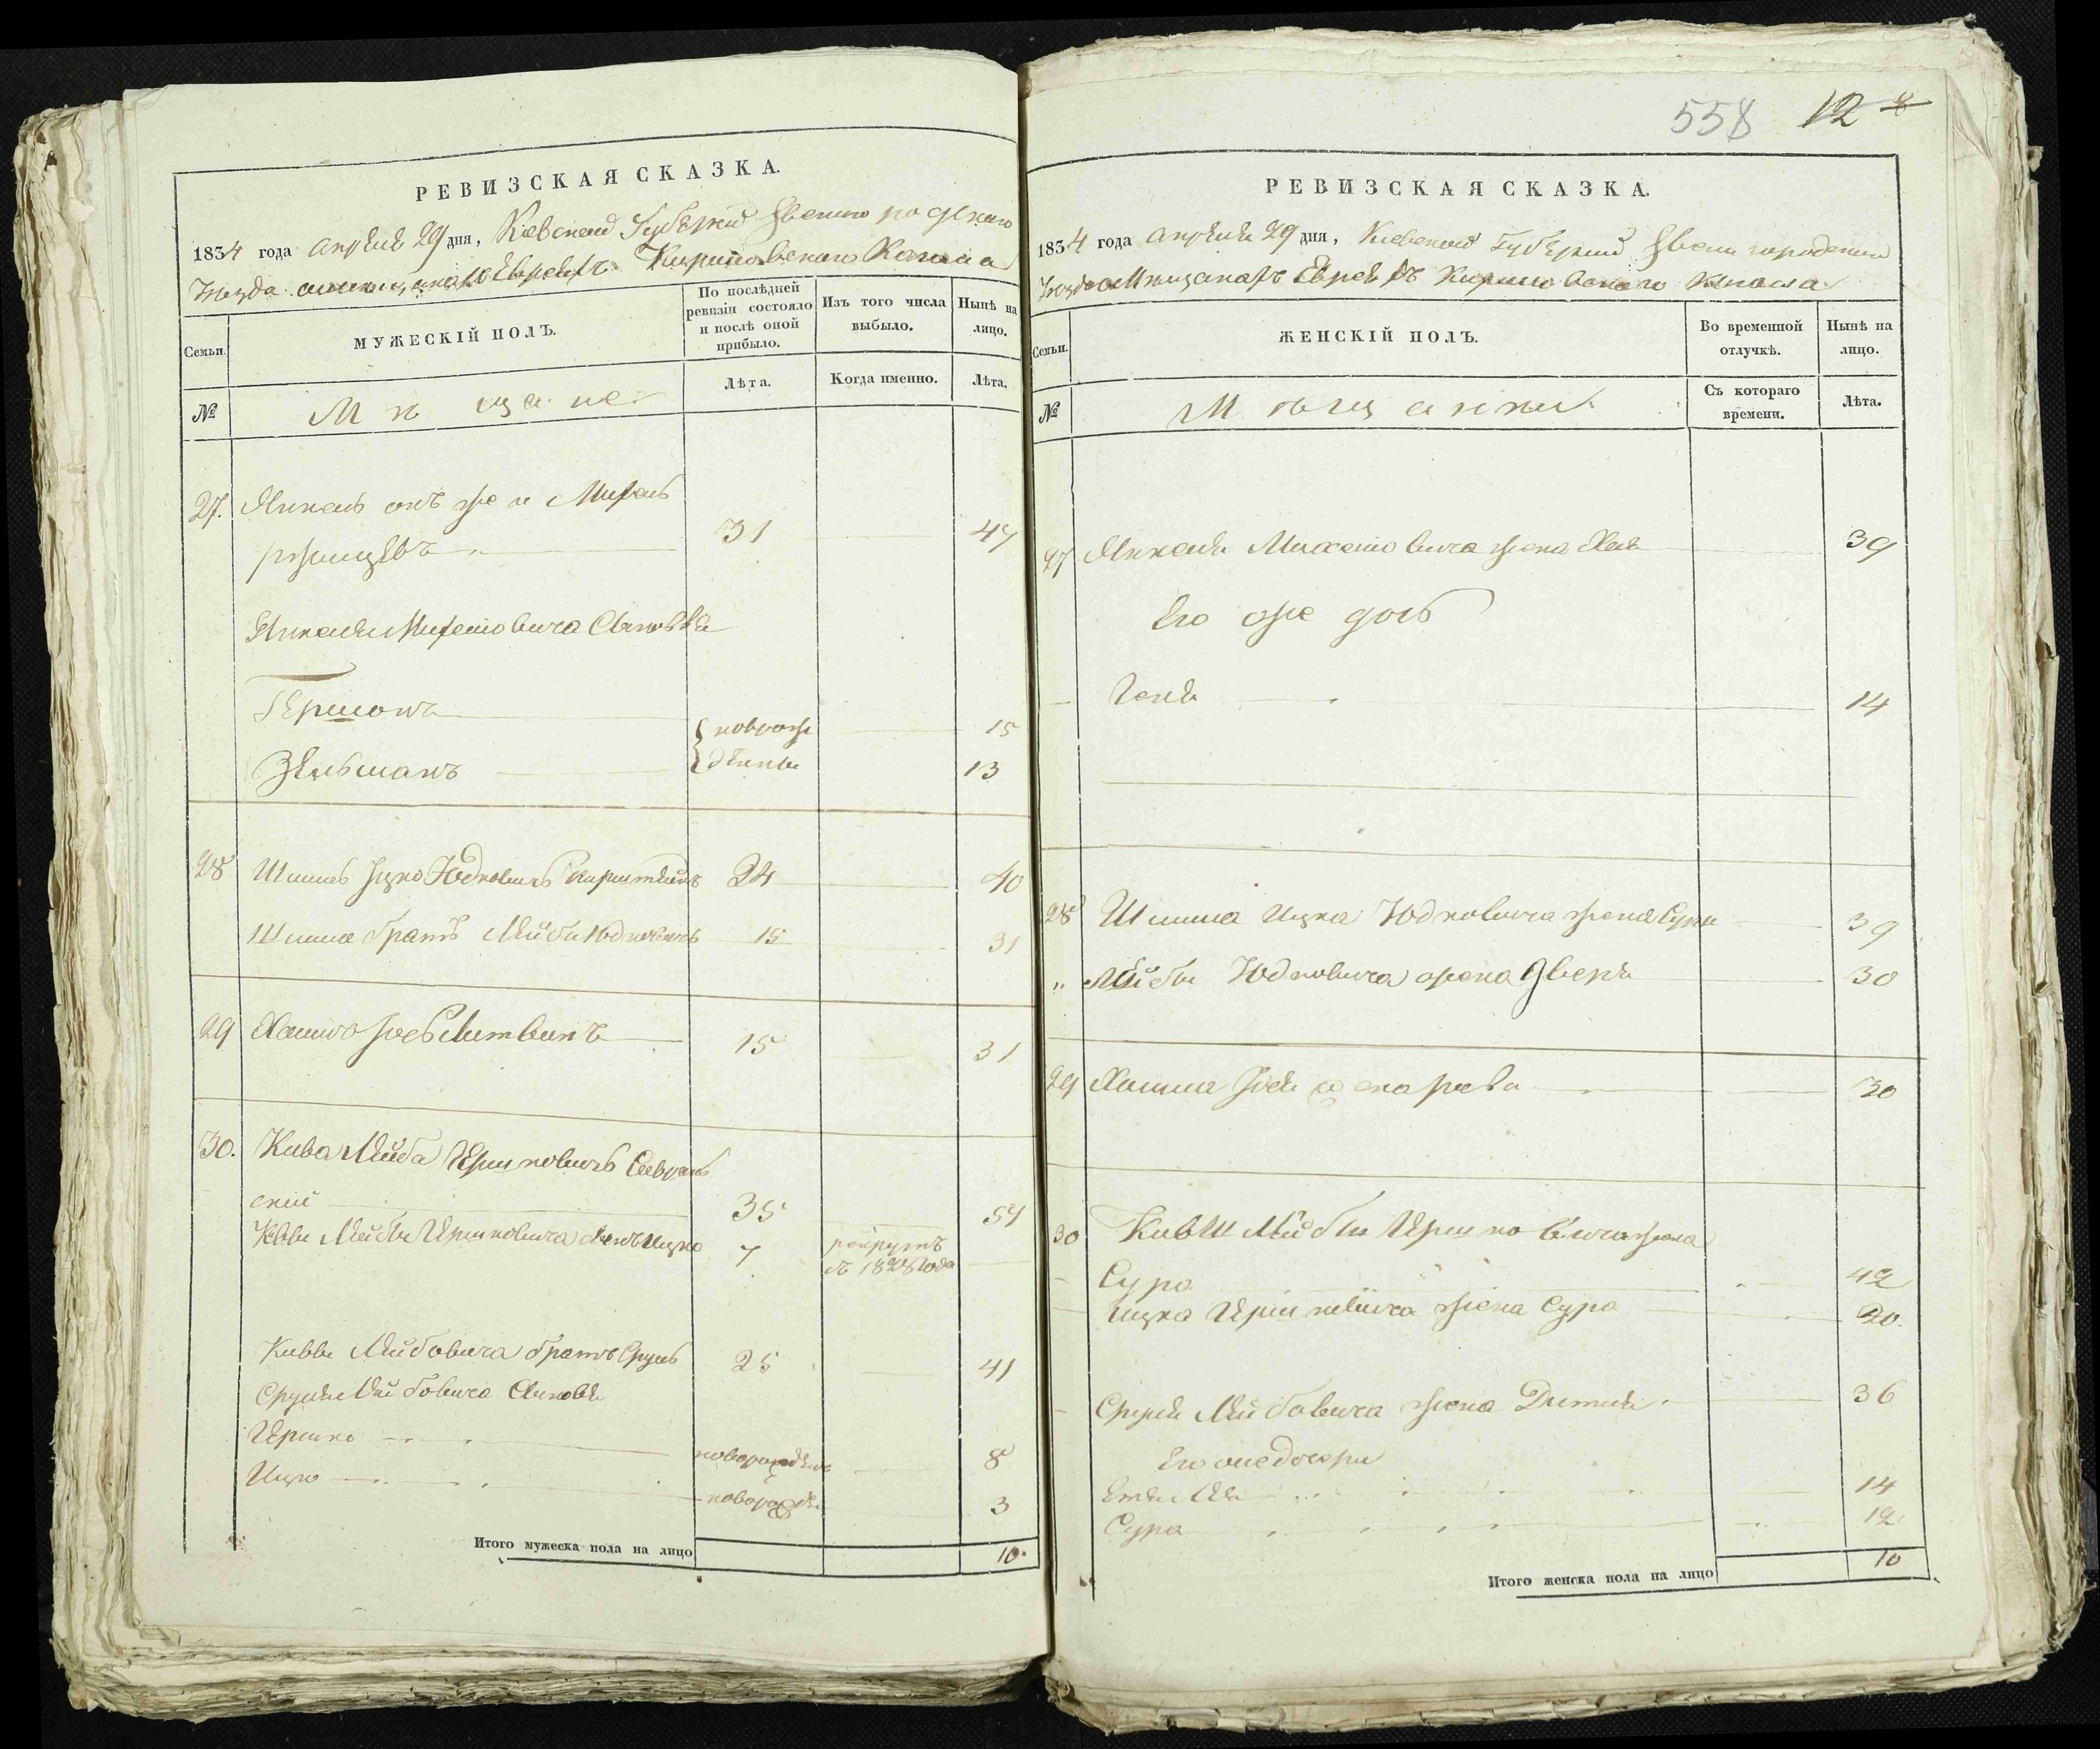 РЕВИЗСКАЯ СКАЗКА.
1834 года Апреля 29 дня, Киевской Губернии Звенигородскаго
уезда о мещанахъ Евреяхъ Кириловскаго Кагала
Семьи.
МУЖЕСКІЙ ПОЛЪ.
По послѣдней ревизіи состояло и послѣ оной прибыло.
Изъ того числа выбыло.
Нынѣ на лицо.
Лѣта.
Когда именно.
Лѣта.
№
Мѣщане
27. Янкель онъ же и Михель
31 47
Янкеля Михелевича Сыновья
Гершонъ новорож 15
Зельманъ денные 13
28 Шмиль Ицко Юдковичь 24 40
Шмиля братъ Лейба Юдковичь 15 31
29 Хаимъ Іось Литвинъ 15 31
30. Кива Лейба Иршковичь
ский 35 51
Кивы Лейбы Иршковича сынъ Ицко 7 рекрутъ
съ 1828 года
Кивы Лейбовича братъ Сруль 25 41
Сруля Лейбовича Сыновья
Иршко новорожден 8
Ицко новорожден 3
Итого мужеска пола на лицо 10.
558 12 8
РЕВИЗСКАЯ СКАЗКА.
1834 года Апреля 29 дня, Киевской Губернии Звенигородскаго
уезда о Мещанахъ Евреяхъ Кириловскаго Кагала
Семьи.
ЖЕНСКІЙ ПОЛЪ.
Во временной отлучкѣ.
Нынѣ на лицо.
№
Мѣщанки
Съ котораго времени.
Лѣта.
27 Янкеля Михелевича жена Хая 39
Его же дочь
Геня 14
28 Шмиля Ицка Юдковича жена Сура 39
„ Лейбы Юдковича жена Двера 30
29 Хаима Іося жена рева 30
30 Кивы Лейбы Иршковича жена
Сура 42
Ицка Иршковича жена Сура 20.
Сруля Лейбовича жена 36
Его же дочери
14
Сура 12
Итого женска пола на лицо 10